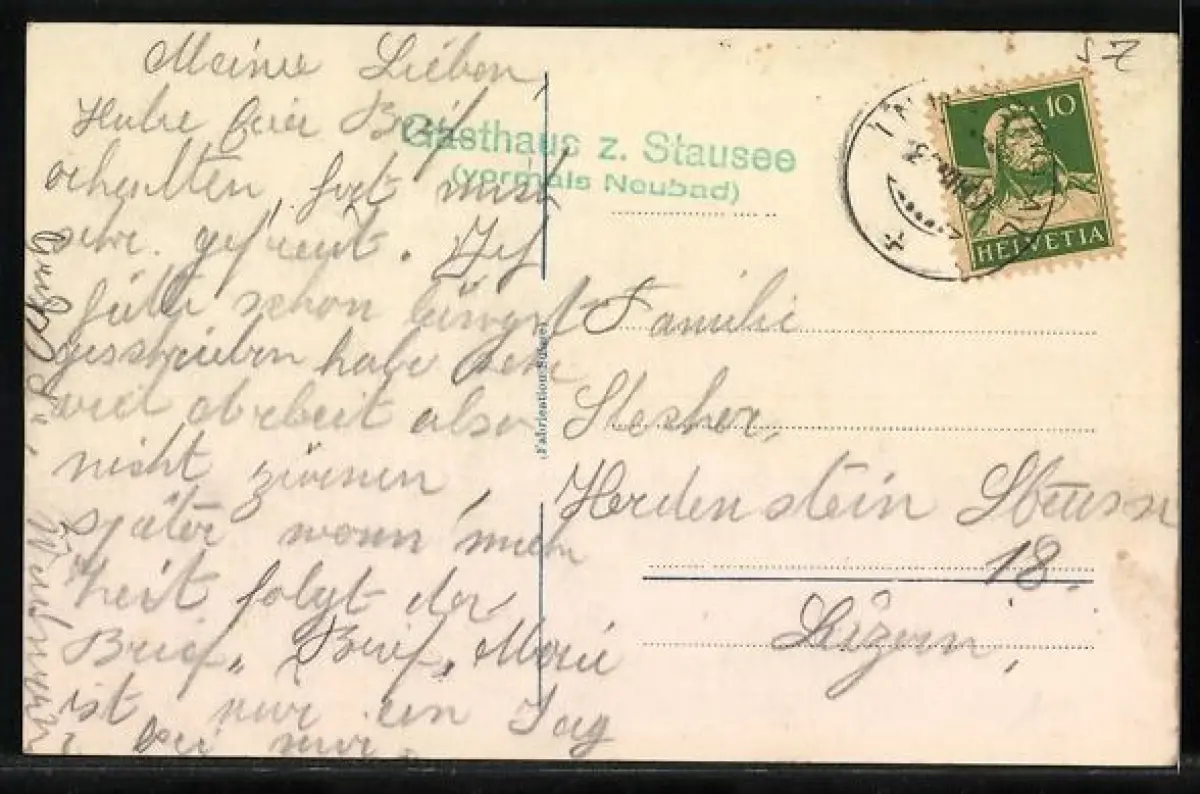 Meine Lieben,
Habe feier Brief
erhalten, hat mich
sehr. gefreut. Ich
hätte schon längst
geschrieben habe sehr
viel arbeit also
nicht zürnen,
später wann mehr
Zeit folgt der
Brief„ Brief„
ist nur ein Tag
bei mir.
Gasthaus z. Stausee
(vormals Neubad)
S Z
10
HELVETIA
(Fabrication Suisse)
Familie
Stecher,
Herdenstein Strasse
18.
Luzern,